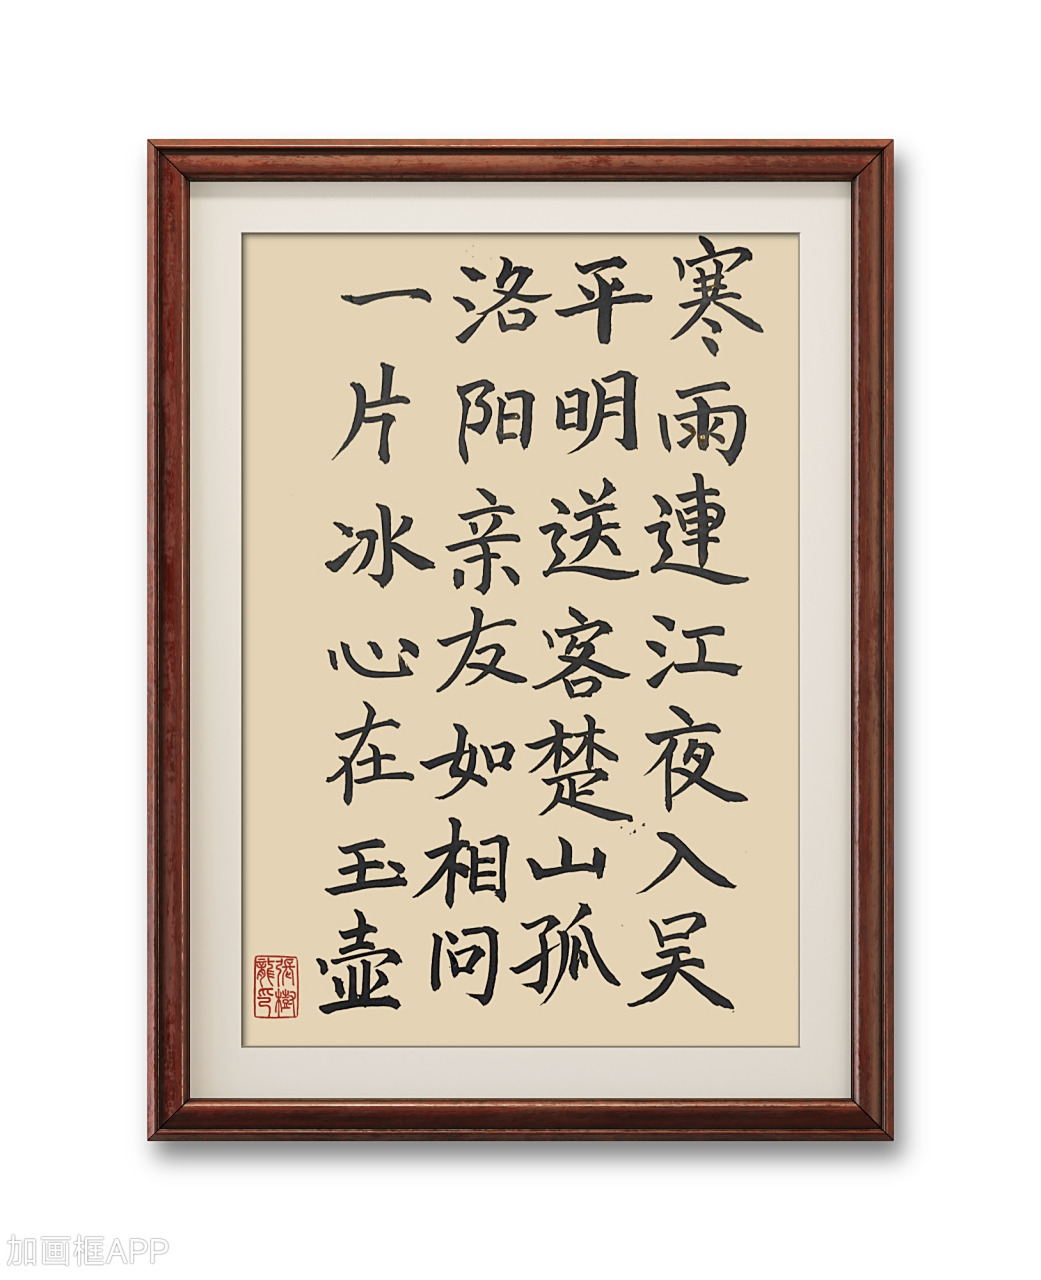 寒雨連江夜入吴
平明送客楚山孤
洛阳亲友如相问
一片冰心在玉壶
張樹龍印
加画框APP